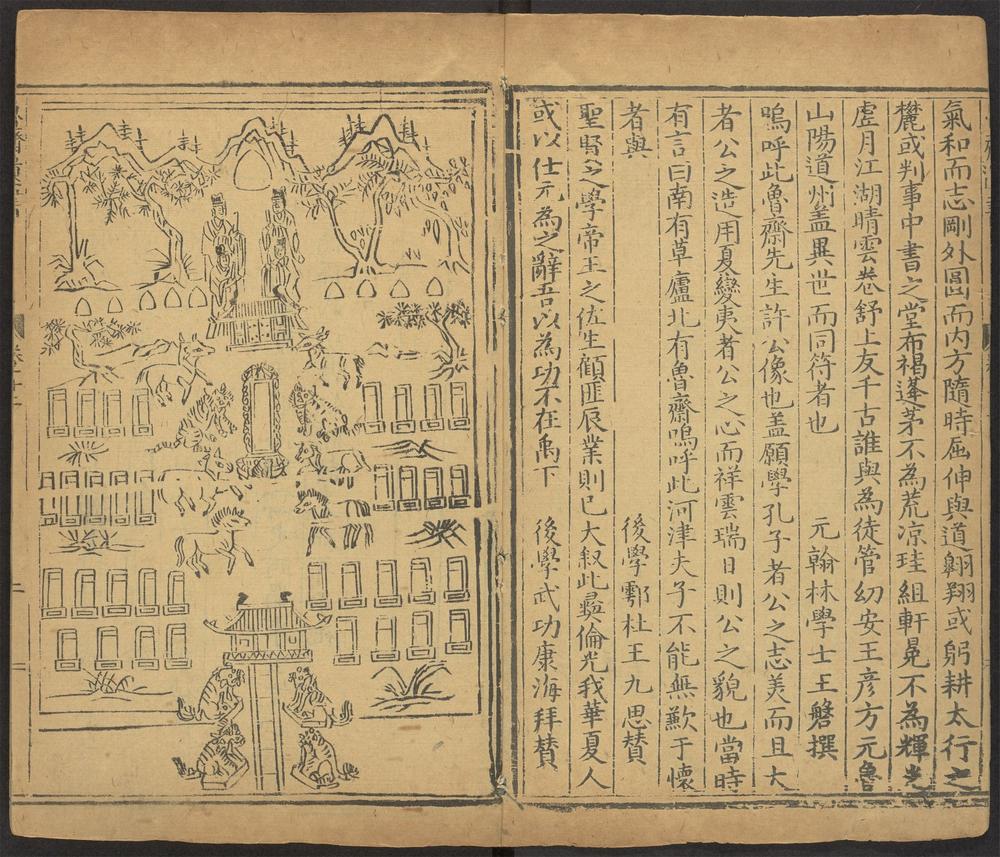 氣和而志剛外圓而内方隨時屈伸與道翺翔或躬耕太行之
麓或判事中書之堂布褐蓬茅不為荒凉珪組軒冕不為輝光
虚月江湖晴雲卷舒上友千古誰與為徒管幼安王彦方元魯
山陽道州盖異世而同符者也 元翰林學士王磐撰
嗚呼此魯齋先生許公像也盖願學孔子者公之志美而且大
者公之造用夏變夷者公之心而祥雲瑞日則公之貌也當時
有言曰南有草廬北有魯齋嗚呼此河津夫子不能無歉于懷
者與 後學鄠杜王九思賛
聖賢之學帝王之佐生顧匪辰業則已大叙此彛倫光我華夏人
或以仕元為之辭吾以為功不在禹下 後學武功康海拜賛